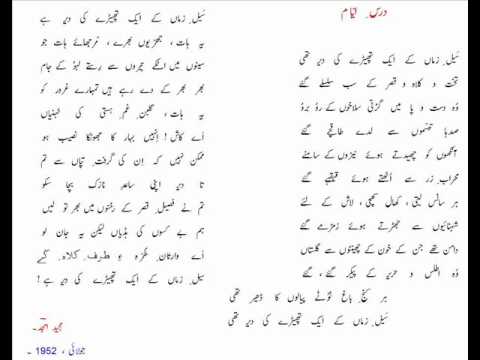 درسِ ایّام
سَیلِ زماں کے ایک تھپیڑے کی دیر تھی
تخت و کلاہ و قصر کے سب سلسلے گئے
وہ دست و پا میں گڑتی سلاخوں کے رُو برُو
صدہا تبسّموں سے لدے طاقچے گئے
آنکھوں کو چھیدتے ہوئے نیزوں کے سامنے
محرابِ زر سے اُٹھتے ہوئے قہقہے گئے
ہر سانس لیتی ، کھال کھنچی ، لاش کے لئے
شہنائیوں سے جھڑتے ہوئے زمزمے گئے
دامن تھے جن کے خون کے چھینٹوں سے گلستاں
وہ اطلس و حریر کے پیکر گئے ، گئے
ہر کنجِ باغ ٹوٹے پیالوں کا ڈھیر تھی
سَیلِ زماں کے ایک تھپیڑے کی دیر تھی
سَیلِ زماں کے ایک تھپیڑے کی دیر ہے
یہ ہات ، جھریوں بھرے ، مُرجھائے ہات جو
سینوں میں اٹکے تیروں سے رستے لہُو کے جام
بھر بھر کے دے رہے ہیں تمہارے غرور کو
یہ ہات ، گلبنِ غمِ ہستی کی ٹہنیاں
اے کاش ! اِنہیں بہار کا جھونکا نصیب ہو
ممکن نہیں کہ اِن کی گرفتِ تپاں سے تم
تا دیر اپنی ساعدِ نازک بچا سکو
تم نے فصیلِ قصر کے رخنوں میں بھر تو لیں
ہم بے کسوں کی ہڈیاں لیکن یہ جان لو
اے وارثانِ طرّہِ طرفِ کلاہِ کَے
سیلِ زماں کے ایک تھپیڑے کی دیر ہے !
مجید امجد
جولائی ، 1952 ۔